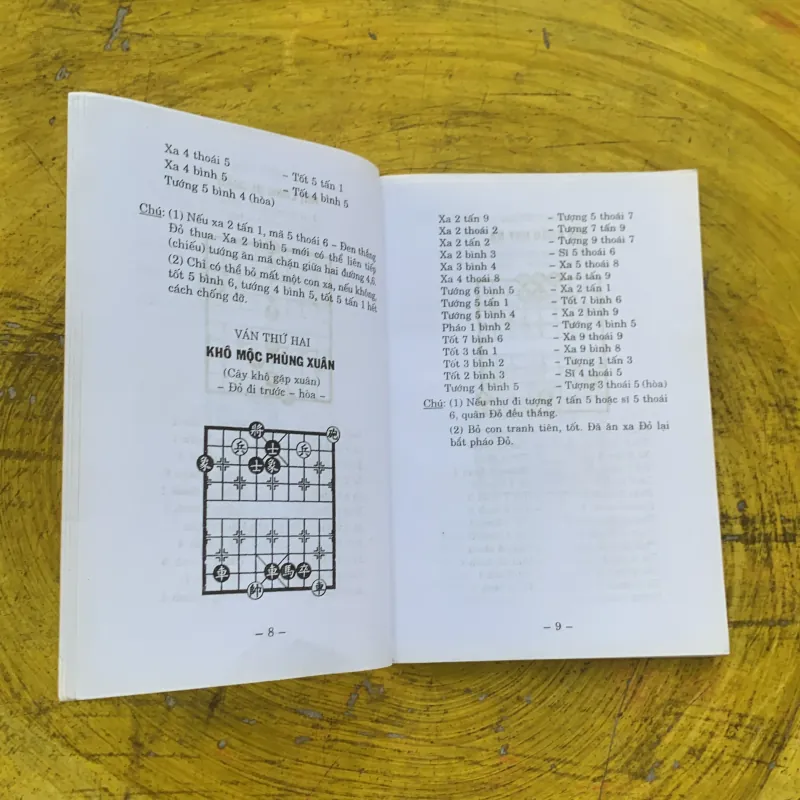 Xa 4 thoái 5 – Tốt 5 tấn 1
Xa 4 bình 5 – Tốt 4 bình 5
Tướng 5 bình 4 (hòa)
Chú: (1) Nếu xa 2 tấn 1, mã 5 thoái 6 – Đen thắng
Đỏ thua. Xa 2 bình 5 mới có thể liên tiếp
(chiếu) tướng ăn mã chặn giữa hai đường 4,6.
(2) Chỉ có thể bỏ mất một con xa, nếu không,
tốt 5 bình 6, tướng 4 bình 5, tốt 5 tấn 1 hết
cách chống đỡ.
VÁN THỨ HAI
KHÔ MỘC PHÙNG XUÂN
(Cây khô gặp xuân)
– Đỏ đi trước – hòa –
將 炮
兵 士 兵
象 士 象
車 車 馬 卒
帥 車
– 8 –
Xa 2 tấn 9 – Tượng 5 thoái 7
Xa 2 thoái 2 – Tượng 7 tấn 9
Xa 2 tấn 2 – Tượng 9 thoái 7
Xa 2 bình 3 – Sĩ 5 thoái 6
Xa 3 bình 4 – Xa 5 thoái 8
Xa 4 thoái 8 – Xa 5 tấn 9
Tướng 6 bình 5 – Xa 2 tấn 1
Tướng 5 tấn 1 – Tốt 7 bình 6
Tướng 5 bình 4 – Xa 2 bình 9
Pháo 1 bình 2 – Tướng 4 bình 5
Tốt 7 bình 6 – Xa 9 thoái 6
Tốt 3 tấn 1 – Xa 9 bình 8
Tốt 3 bình 2 – Tượng 1 tấn 3
Tốt 2 bình 3 – Sĩ 4 thoái 5
Tướng 4 bình 5 – Tượng 3 thoái 5 (hòa)
Chú: (1) Nếu như đi tượng 7 tấn 5 hoặc sĩ 5 thoái
6, quân Đỏ đều thắng.
(2) Bỏ con tranh tiên, tốt. Đã ăn xa Đỏ lại
bắt pháo Đỏ.
– 9 –